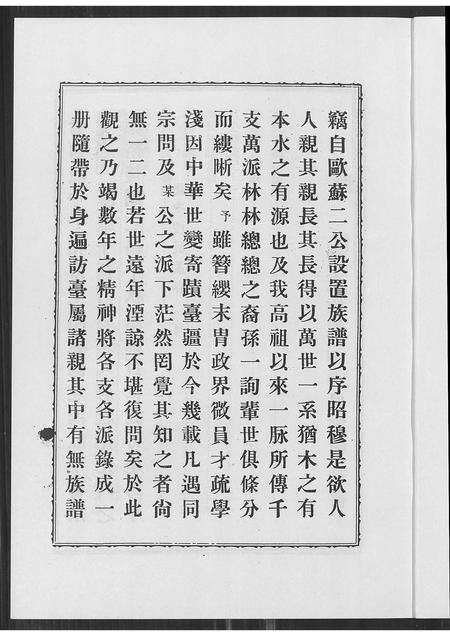 竊自歐蘇二公設置族譜以序昭穆是欲人
人親其親長其長得以萬世一系猶木之有
本水之有源也及我高祖以來一脉所傳千
支萬派林林總總之裔孫一詢輩世俱條分
而縷晰矣予雖簪纓末胄政界微員才疏學
淺因中華世變寄蹟臺疆於今幾載凡遇同
宗問及某公之派下茫然罔覺其知之者尙
無一二也若世遠年湮諒不堪復問矣於此
觀之乃竭數年之精神將各支各派錄成一
册隨帶於身遍訪臺屬諸親其中有無族譜